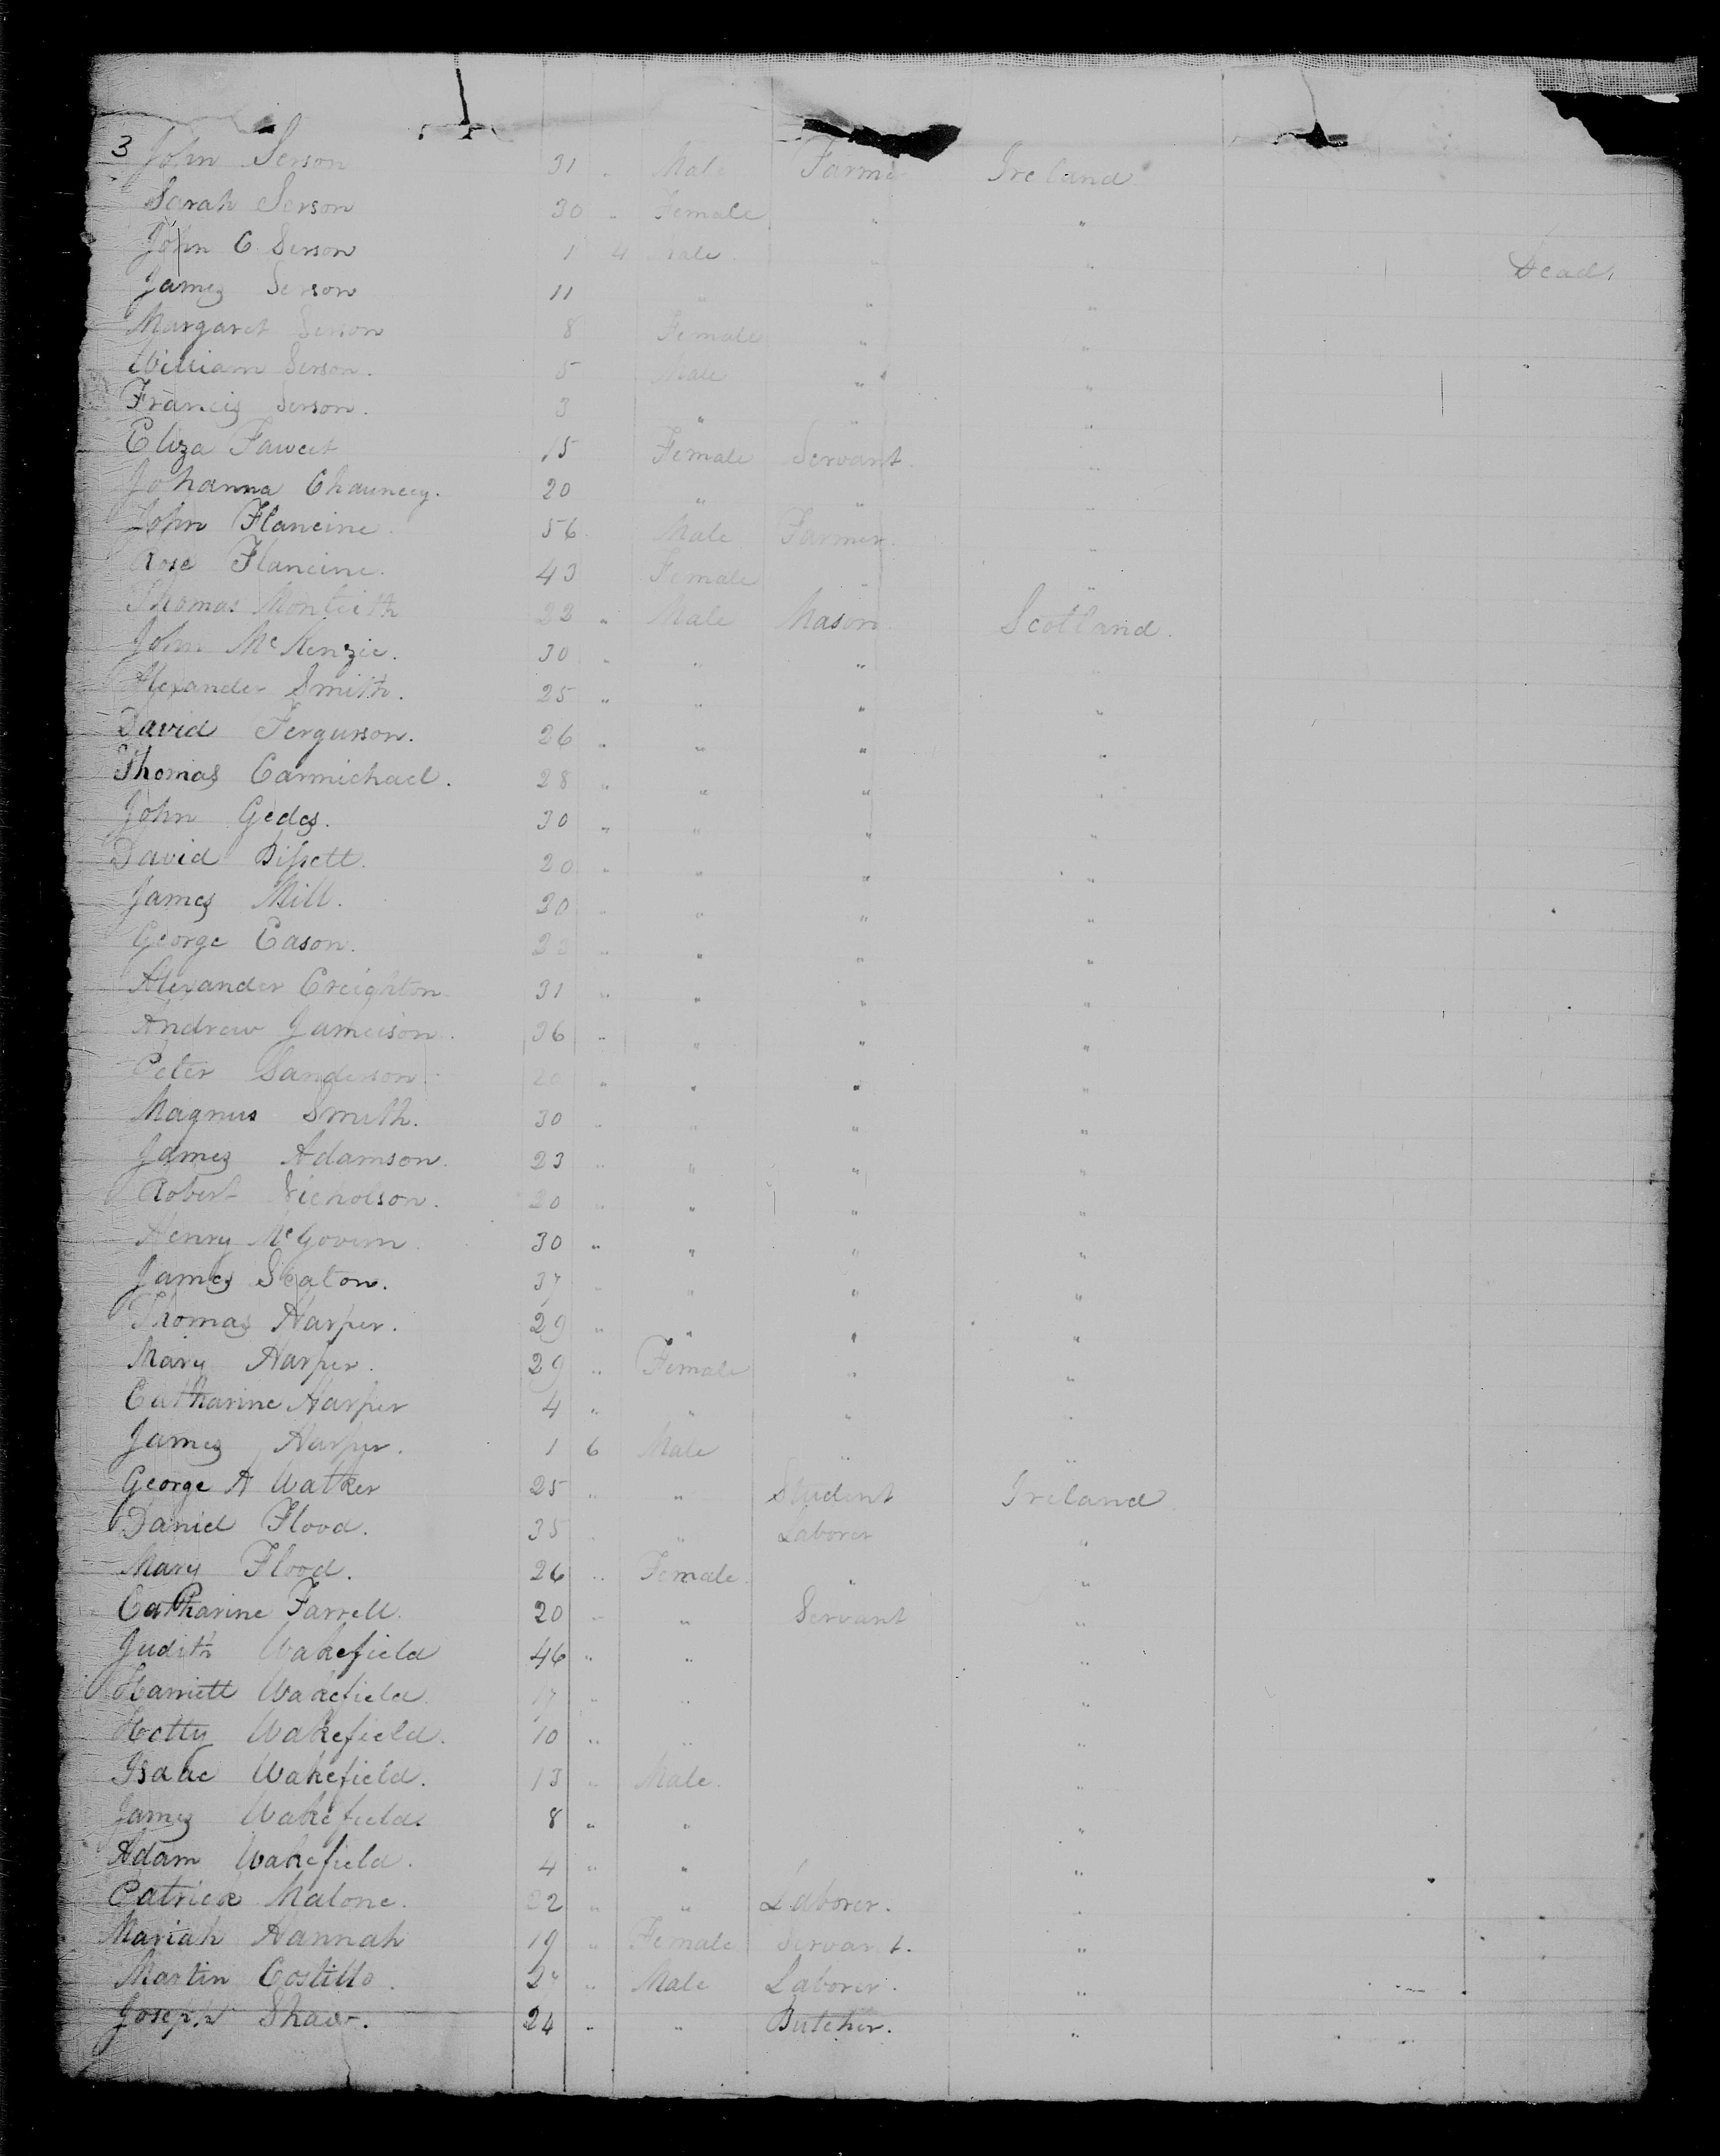 3 John Serson 31 " Male Farmer Ireland
Sarah Serson 30 " Female " "
John C Serson 1 4 Male " " Dead.
James Serson 11 " " "
Margaret Serson 8 Female " "
William Serson. 5 Male " "
Francis Serson. 3 " " "
Eliza Fawcet 15 Female Servant. "
Johanna Chauncey. 20 " " "
John Flancine. 56 Male Farmer. "
Rose Flancine. 43 Female " "
Thomas Montieth 22 " Male Mason. Scotland.
John McKenzie. 30 " " " "
Alexander Smith. 25 " " " "
David Fergurson. 26 " " " "
Thomas Carmichael. 28 " " " "
John Gedes. 30 " " " "
David Bissett. 20 " " " "
James Mill. 30 " " " "
George Eason. " " " "
Alexander Creighton 31 " " " "
Andrew Jameison. 36 " " " "
Peter Sanderson. 20 " " " "
Magnus Smith. 30 " " " "
James Adamson. 23 " " " "
Robert Nicholson. 20 " " " "
Henry McGovern 30 " " " "
James Seaton. 37 " " " "
Thomas Harper. 29 " " " "
Mary Harper. 29 " Female " "
Catharine Harper 4 " " " "
James Harper. 1 6 Male " "
George A Walker 25 " " Student Ireland.
Daniel Flood. 35 " " Laborer "
Mary Flood. 26 " Female. " "
Catharine Farrell. 20 " " Servant "
Judith Wakefield 46 " " "
Harriett Wakefield. 17 " " "
Hetty Wakefield. 10 " " "
Isaac Wakefield. 13 " Male. "
James Wakefield. 8 " " "
Adam Wakefield. 4 " " "
Patrick Malone. 22 " " Laborer. "
Mariah Hannah 19 " Female Servant. "
Martin Costillo. 27 " Male Laborer. "
Joseph Shaw. 24 " " Butcher. "